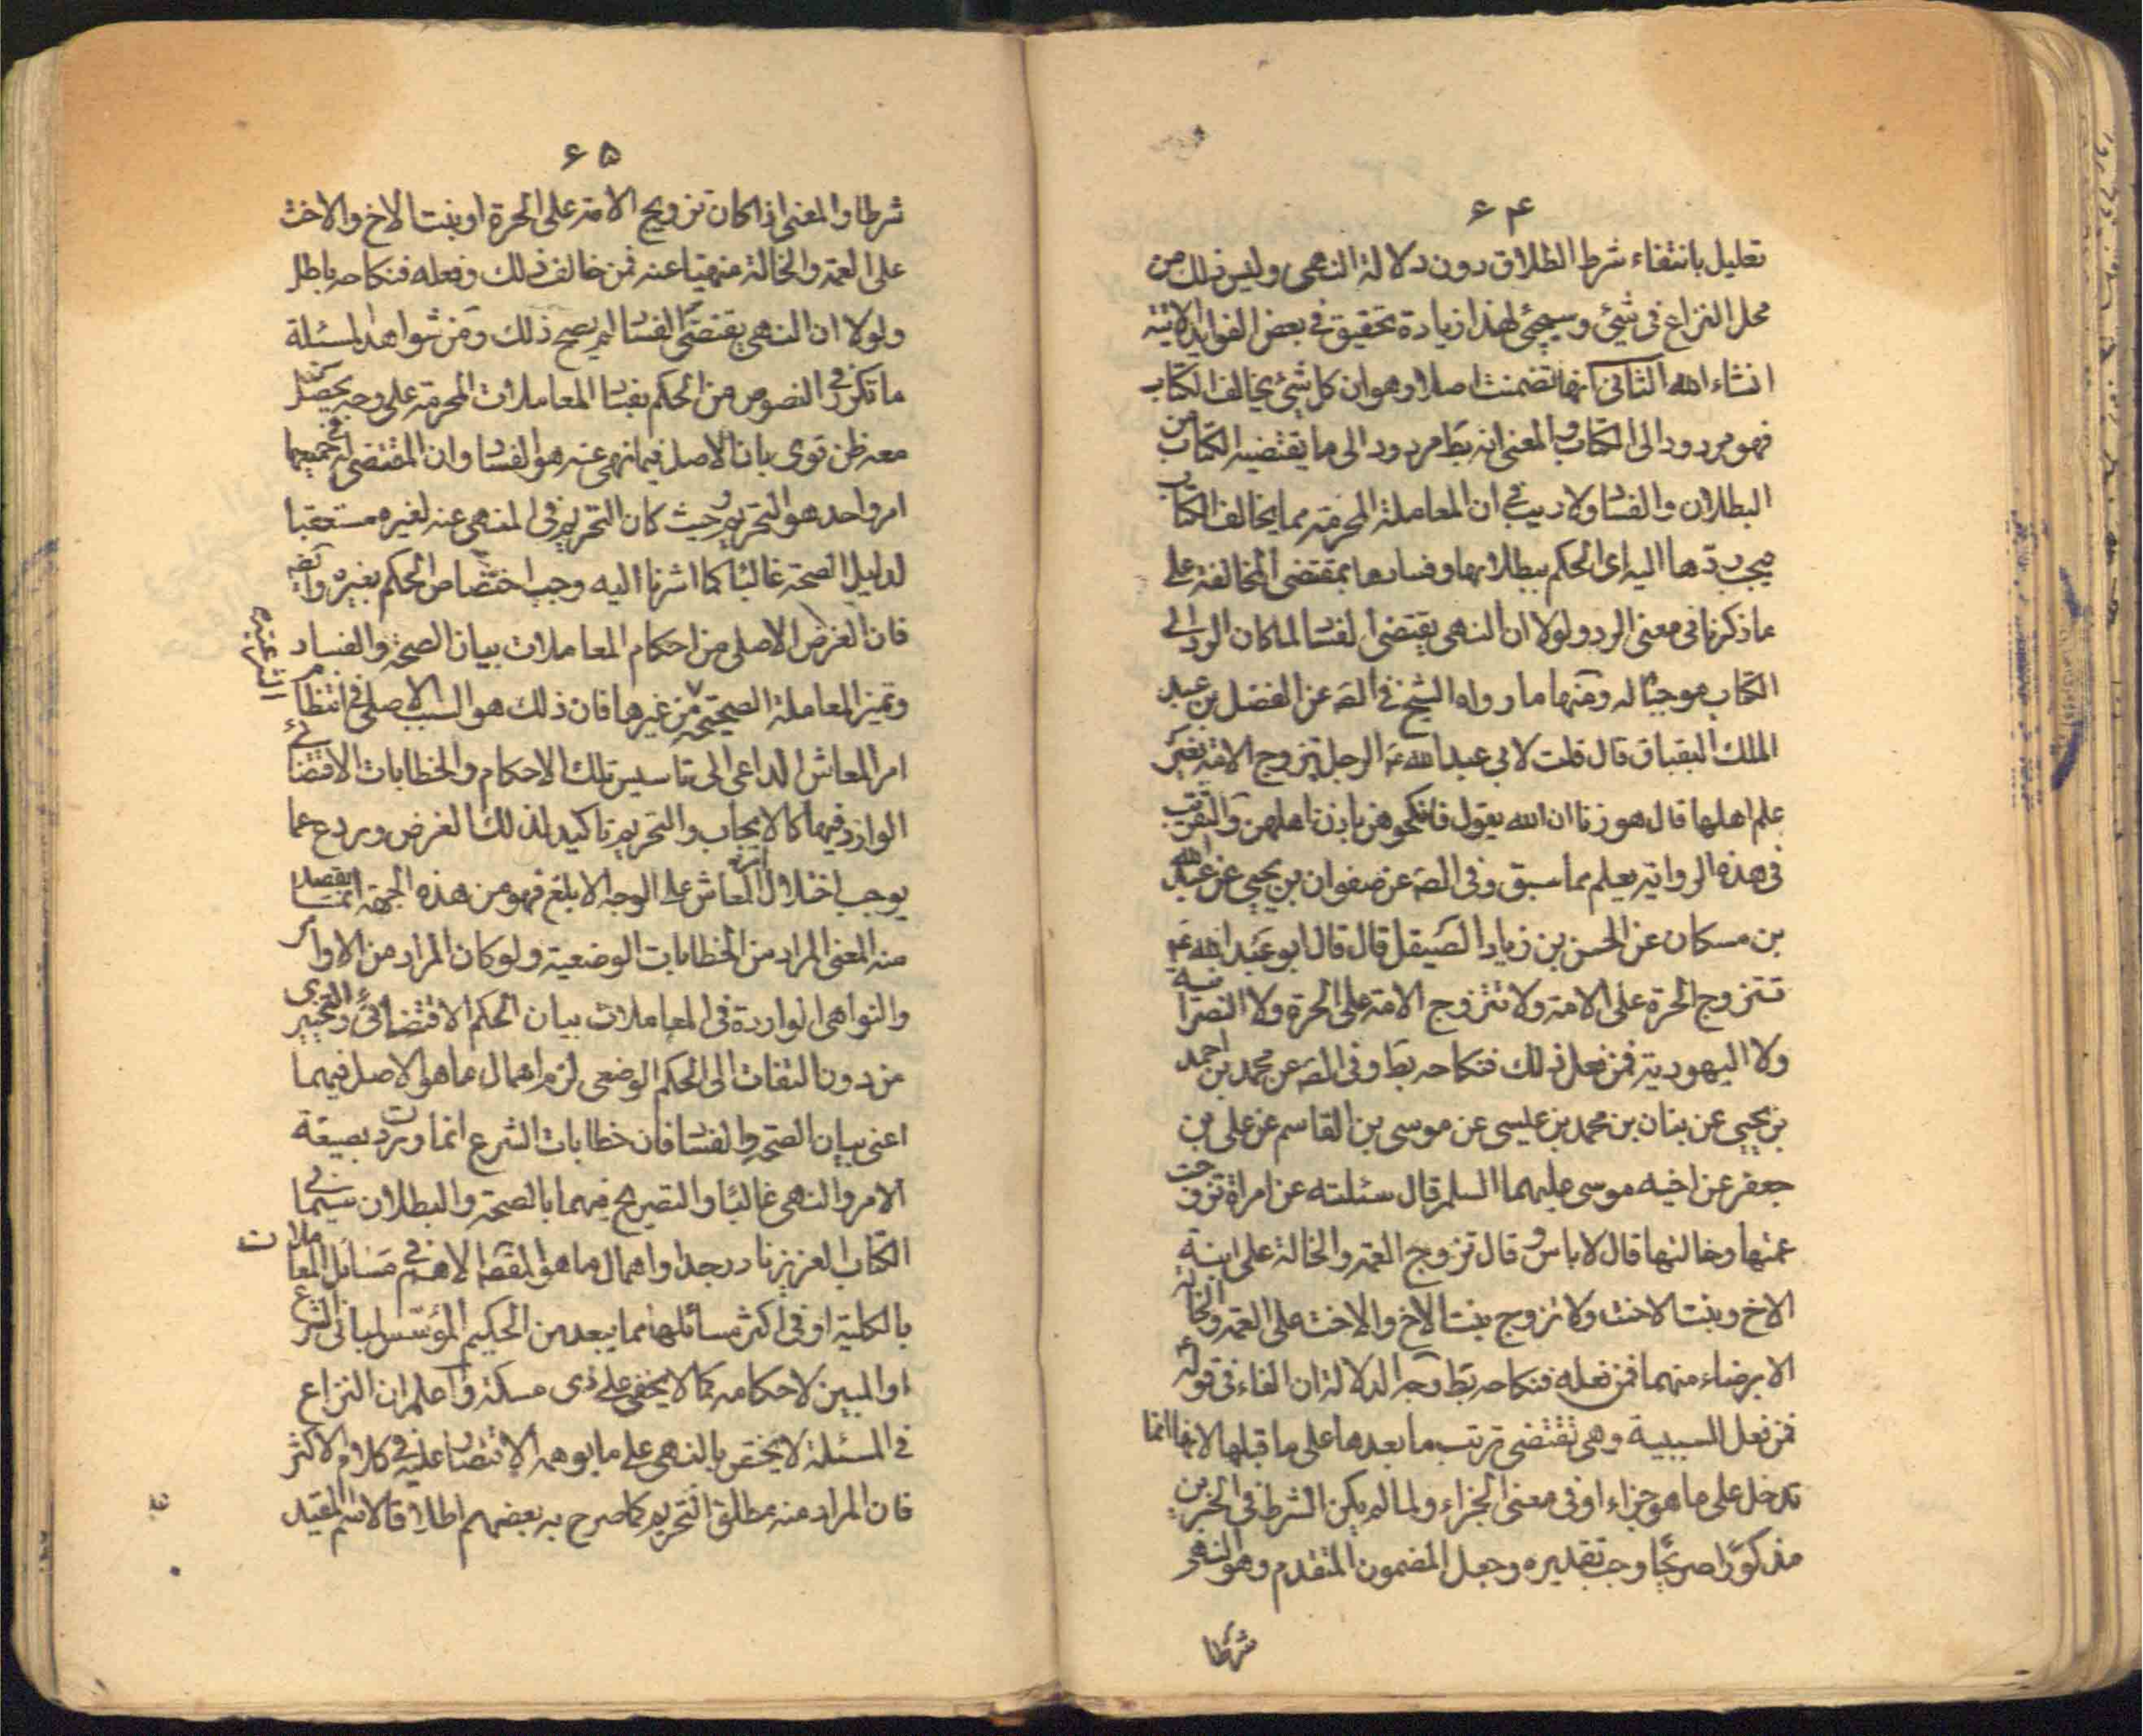 ۶۴
تعليل بانتفاء شرط الطلاق دون دلالة النهى وليس ذلك من
محل النزاع فى شئ وسيجئ لهذا زيادة تحقيق فى بعض الفوايد الاتية
انشاء الله الثانى انها تضمنت اصلا وهو ان كل شئ يخالف الكتاب
فهو مردود الى الكتاب والمعنى انه بط مردود الى ما يقتضيه الكتاب من
البطلان والفسا ولا ريب فى ان المعاملة المحرمة مما يخالف الكتاب
فيجب ردها اليه اى الحكم ببطلانها وفسادها بمقتضى المخالفة على
ما ذكرنا فى معنى الرد ولولا ان النهى يقتضى الفسا لما كان الرد الى
الكتاب موجبًا له ومنها ما رواه الشيخ فى الصه عن الفضل بن عبد
الملك البقباق قال قلت لابى عبد الله ع الرجل يتزوج الامة بغير
علم اهلها قال هو زنا ان الله يقول فانكحوهن باذن اهلهن والتقريب
فى هذه الرواية يعلم مما سبق وفى الصه عن صفوان بن يحيى عن عبد الله
بن مسكان عن الحسن بن زياد الصيقل قال قال ابو عبد الله ع
تتزوج الحرة على الامة ولا تتزوج الامة على الحرة ولا النصرانية
ولا اليهودية فمن فعل ذلك فنكاحه بط وفى الصه عن محمد بن احمد
بن يحيى عن بنان بن محمد بن عيسى عن موسى بن القاسم عن على بن
جعفر عن اخيه موسى عليهما السلم قال سئلته عن امراة تزوجت
عمتها وخالتها قال لا باس وقال تزوج العمة والخالة على ابنة
الاخ وبنت الاخت ولا تزوج بنت الاخ والاخت على العمة والخالة
الا برضاء منهما فمن فعله فنكاحه بط وجه الدلالة ان الفاء فى قوله
فمن فعل السببية وهى تقتضى ترتب ما بعدها على ما قبلها لانها انما
تدخل على ما هو جزاء او فى معنى الجزاء ولما لم يكن الشرط فى الخبرين
مذكورًا صريحًا وجب تقديره وجعل المضمون المتقدم وهو النهى
شرطا
۶۵
شرطا والمعنى اذا كان تزويج الامة على الحرة او بنت الاخ والاخت
على العمة والخالة منهيا عنه فمن خالف ذلك وفعله فنكاحه باطل
ولولا ان النهى يقتضى الفسا لم يصح ذلك ومن شواهد المسئلة
ما تكرر فى النصوص من الحكم بفسا المعاملات المحرمة على وجه يحصل
معه ظن قوى بان الاصل فيما نهى عنه هو الفسا وان المقتضى له فى جميعها
امر واحد هو التحريم وحيث كان التحريم فى المنهى عنه لغيره مستعقبا
لدليل الصحة غالبًا كما اشرنا اليه وجب اختصاص الحكم بغيره وايضه
فان الغرض الاصلى من احكام المعاملات بيان الصحة والفساد
وتميز المعاملة الصحيحة من غيرها فان ذلك هو السبب الاصلى فى انتظام
امر المعاش الداعى الى تاسيس تلك الاحكام والخطابات الاقتضائى
الوارد فيها كالايجاب والتحريم تاكيد لذلك الغرض وردع عما
يوجب اختلال امر المعاش على الوجه الابلغ فهو من هذه الجهة انما يقصد
منه المعنى المراد من الخطابات الوضعية ولو كان المراد من الاوامر
والنواهى الواردة فى المعاملات بيان الحكم الاقتضائى والتخييرى
من دون التفات الى الحكم الوضعى لزم اهمال ما هو الاصل فيهما
اعنى بيان الصحة والفسا فان خطابات الشرع انما وردت بصيغة
الامر والنهى غالبًا والتصريح فيهما بالصحة والبطلان سيما فى
الكتاب العزيز نادر جدا واهمال ما هو المقصه الاهم فى مسائل المعاملات
بالكلية او فى اكثر مسائلها مما يبعد من الحكيم المؤسس لمبانى الشرع
او المبين لاحكامه كما لا يخفى على ذى مسكة واعلم ان النزاع
فى المسئلة لا يختص بالنهى على ما يوهمه الاقتصار عليه فى كلام الاكثر
فان المراد منه مطلق التحريم كما صرح به بعضهم اطلاقا لاسم المقيد